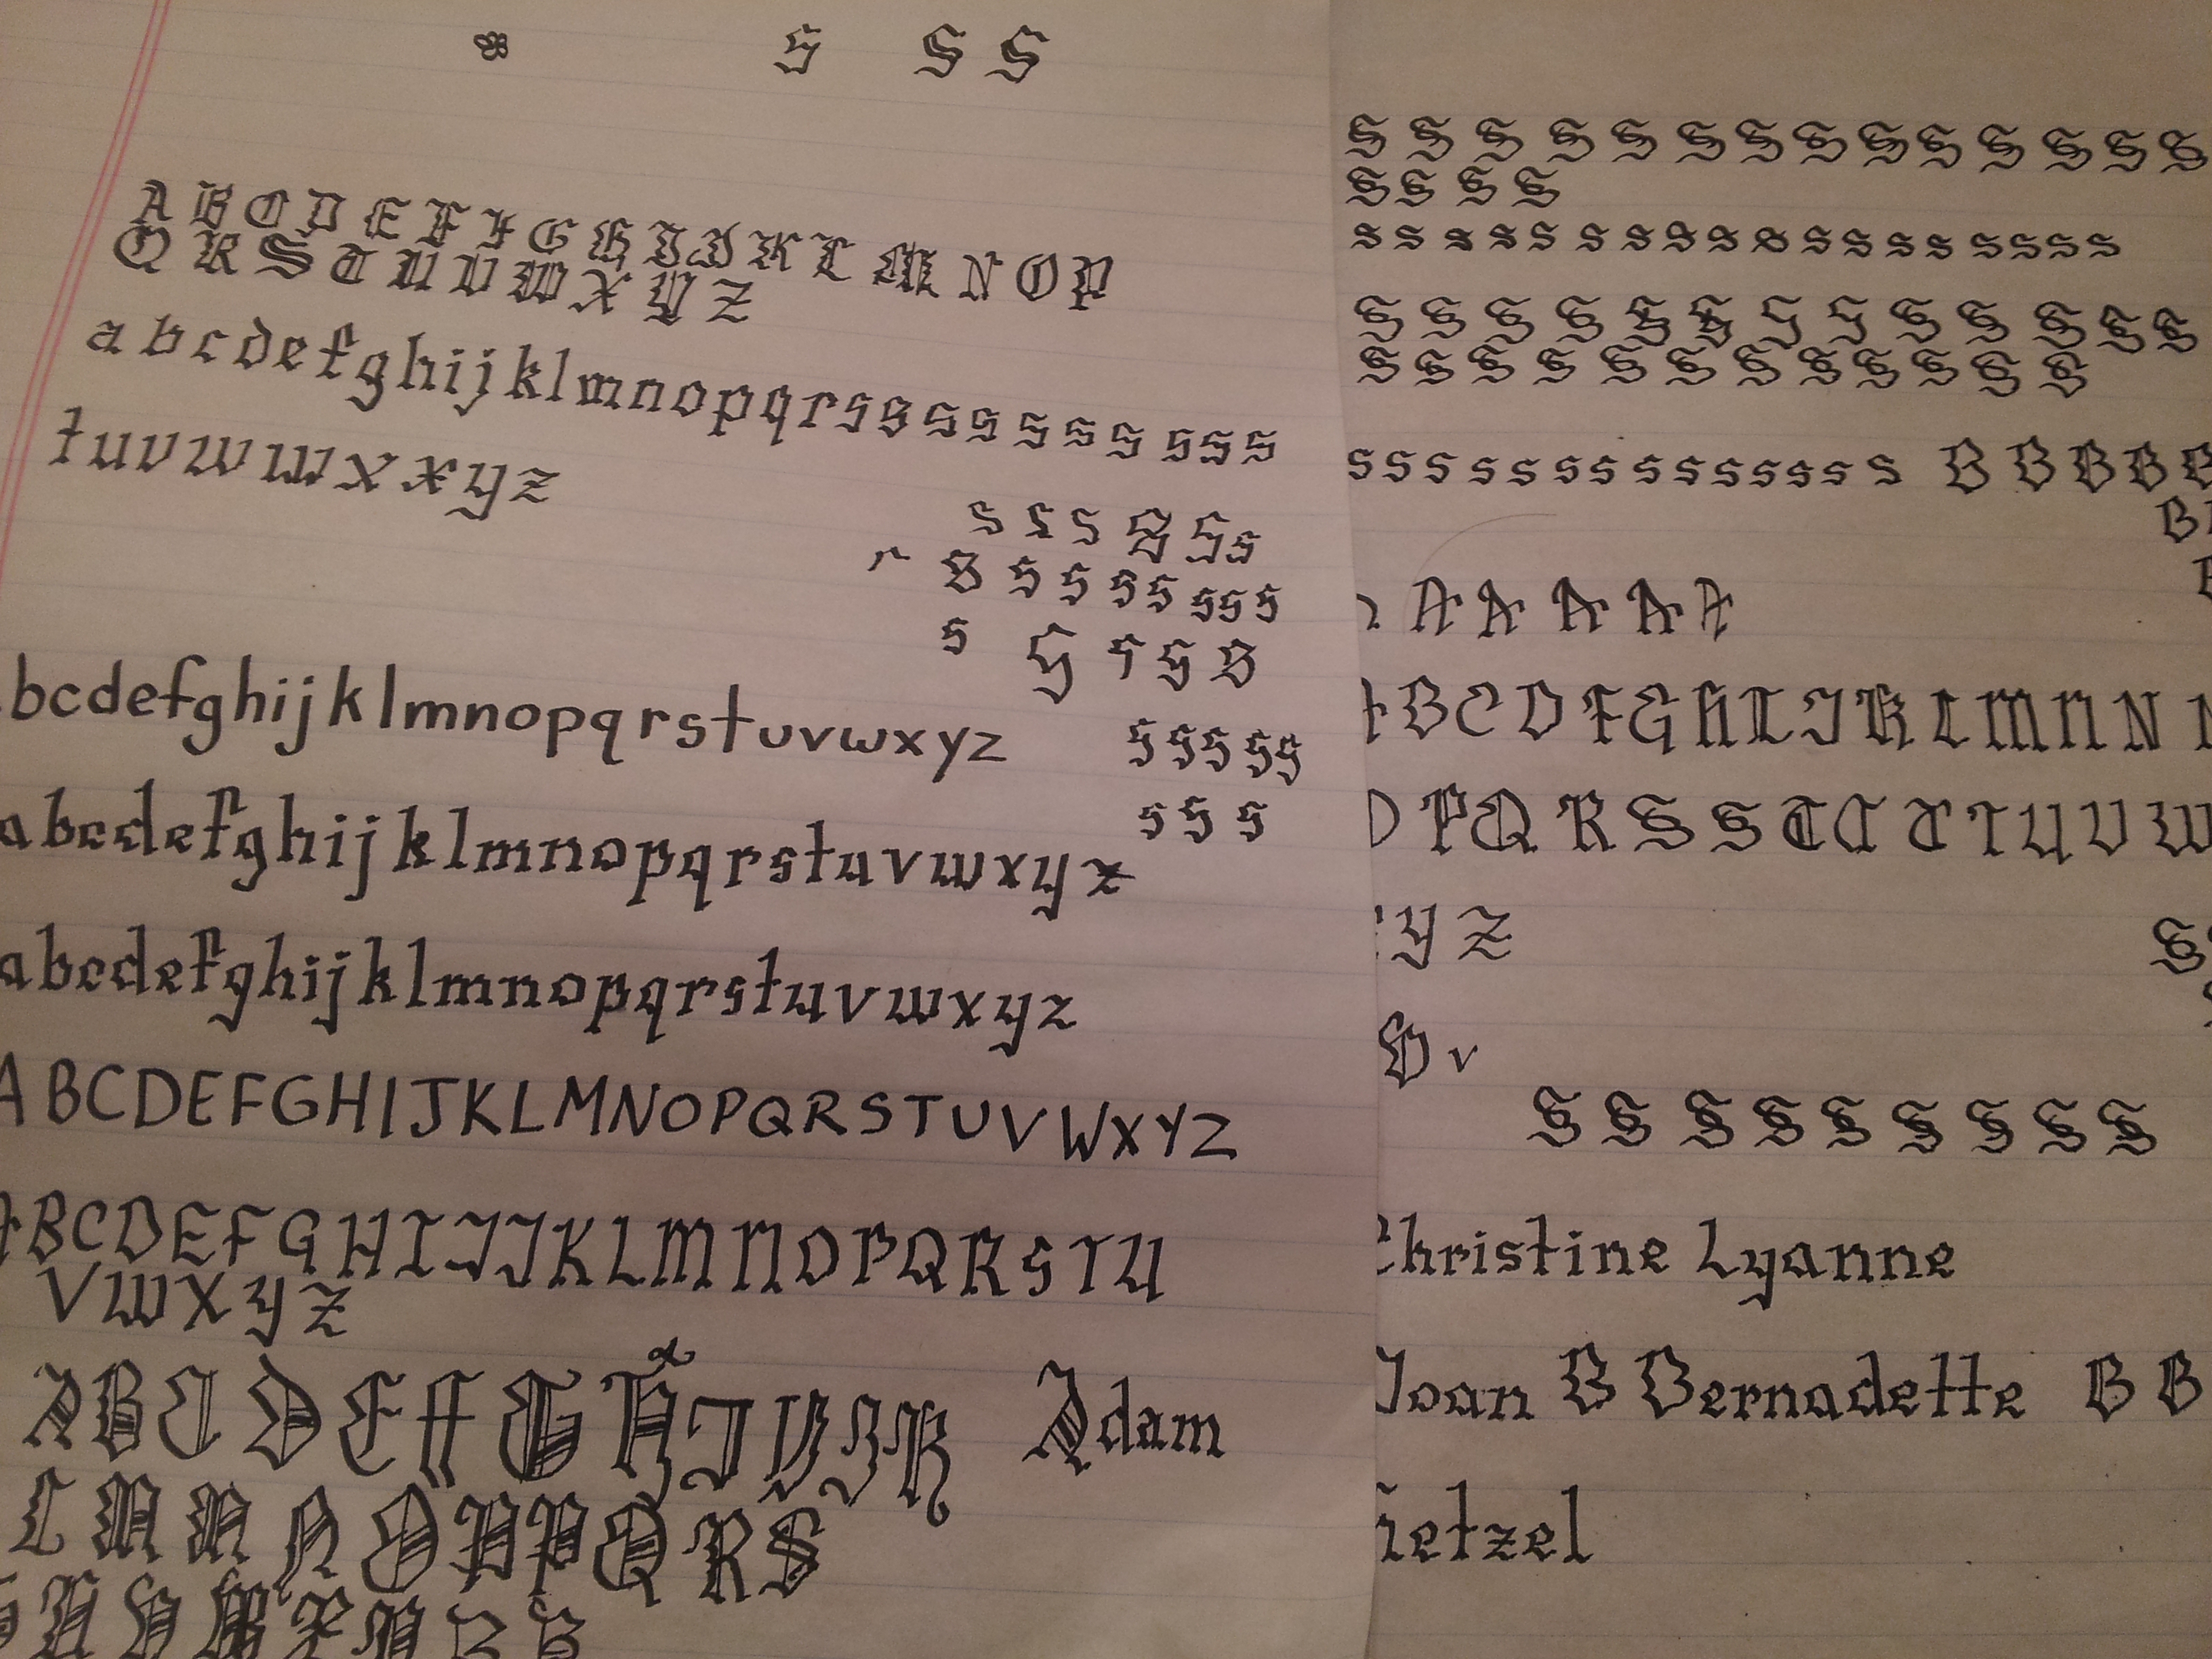 S S S
A B C D E F F G H I J K L M N O P
Q R S T U U W X Y Z
a b c d e f g h i j k l m n o p q r s s s s s s s s s s
t u v w w x x y z
s s s S S s
r s s s s s s s s
s S s s s
bcdefghijklmnopqrstuvwxyz
s s s s s
s s s
abcdefghijklmnopqrstuvwxyz
abcdefghijklmnopqrstuvwxyz
ABCDEFGHIJKLMNOPQRSTUVWXYZ
ABCDEFGHIJJKLMNOPQRSTU
VWXYZ
A B C D E F G H I
Adam
L M N N O P P Q R S
S S S S S S S S S S S S S S
S S S S
s s s s s s s s s s s s s s s s s s
S S S S S S S S S S S S S
S S S S S S S S S S S S
s s s s s s s s s s s s s s B B B B B
A A A A A
B C D F G H I J K L M N N
P Q R S S T T T T U V W
y Z
v
S S S S S S S S S
Christine Lyanne
Joan B Bernadette B B
etzel